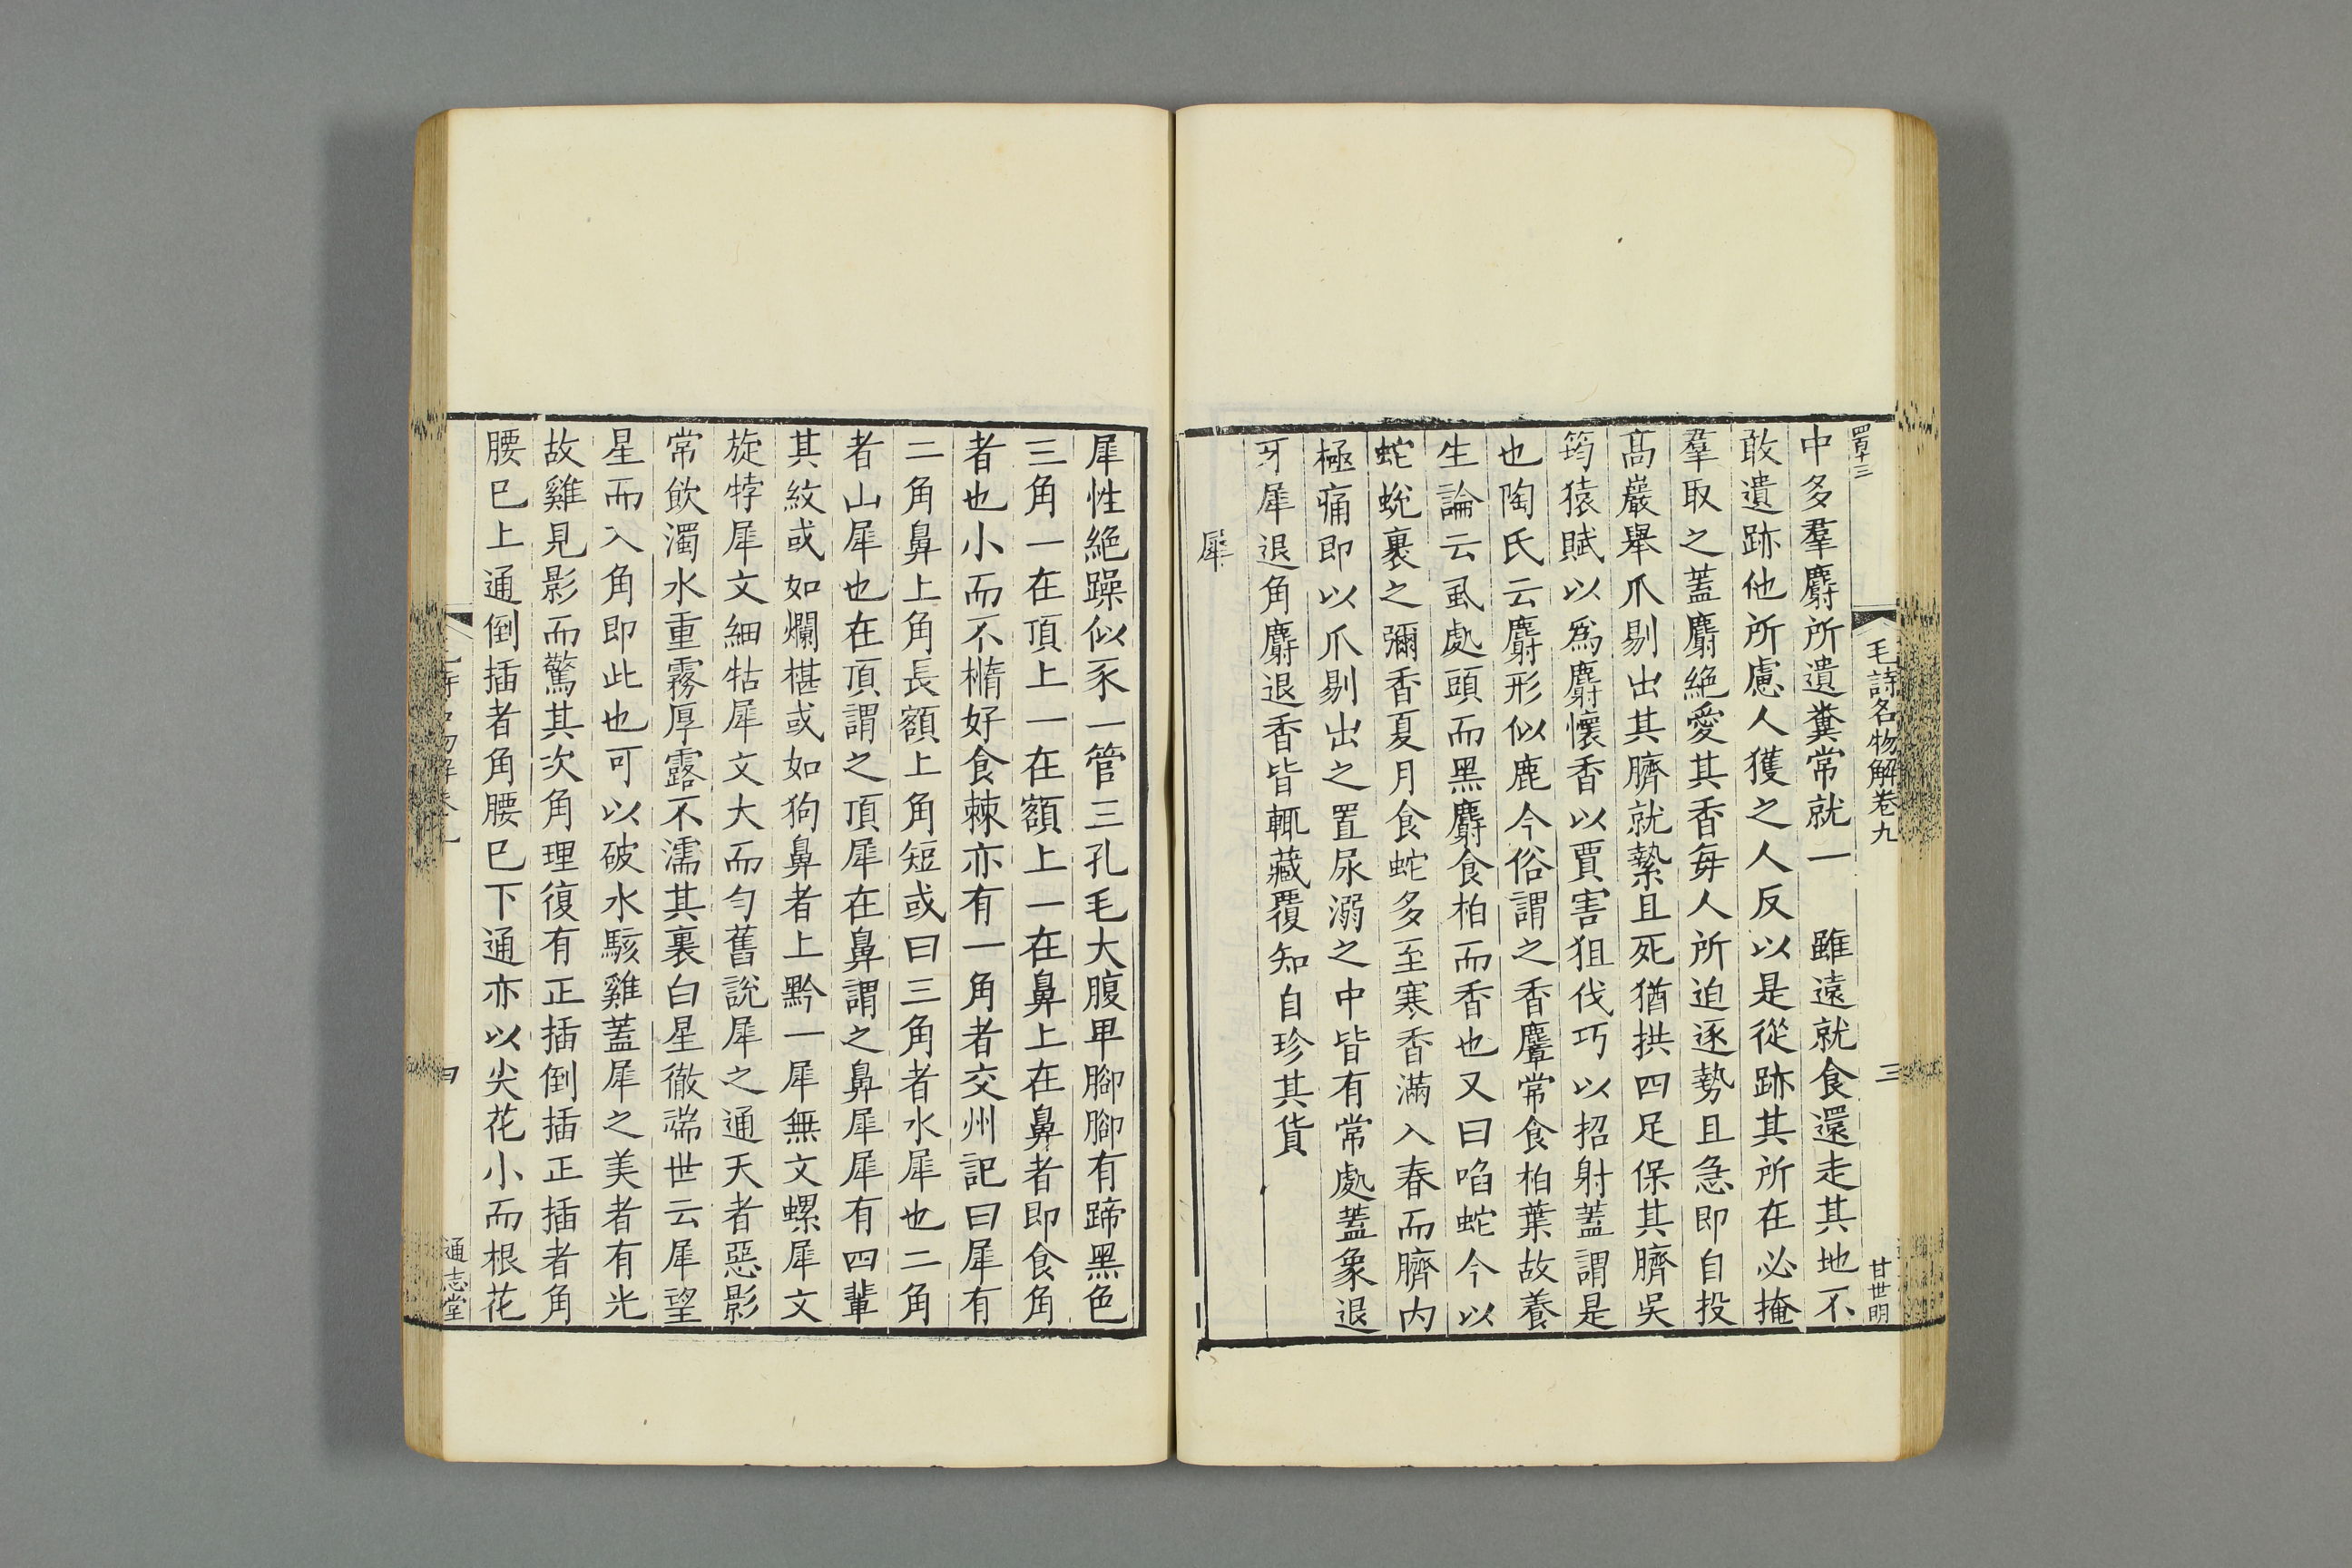 四百十三
毛詩名物解卷九
三
甘世明
中多羣麝所遺糞常就一　雖遠就食還走其地不
敢遺跡他所慮人獲之人反以是從跡其所在必掩
羣取之蓋麝絶愛其香每人所迫逐勢且急即自投
髙巖舉爪剔出其臍就縶且死猶拱四足保其臍吳
筠猿賦以爲麝懷香以賈害狙伐巧以招射蓋謂是
也陶氏云麝形似鹿今俗謂之香麞常食柏葉故養
生論云虱處頭而黑麝食柏而香也又曰啗蛇今以
蛇蛻裹之彌香夏月食蛇多至寒香滿入春而臍内
極痛即以爪剔出之置尿溺之中皆有常處蓋象退
牙犀退角麝退香皆輒藏覆知自珍其貨
犀
犀性絶躁似豕一管三孔毛大腹甲腳腳有蹄黑色
三角一在頂上一在額上一在鼻上在鼻者即食角
者也小而不橢好食棘亦有一角者交州記曰犀有
二角鼻上角長額上角短或曰三角者水犀也二角
者山犀也在頂謂之頂犀在鼻謂之鼻犀犀有四輩
其紋或如爛椹或如狗鼻者上黔一犀無文螺犀文
旋牸犀文細牯犀文大而勻舊説犀之通天者惡影
常飲濁水重霧厚露不濡其裏白星徹端世云犀望
星而入角即此也可以破水駭雞蓋犀之美者有光
故雞見影而驚其次角理復有正插倒插正插者角
腰巳上通倒插者角腰巳下通亦以尖花小而根花
通志堂